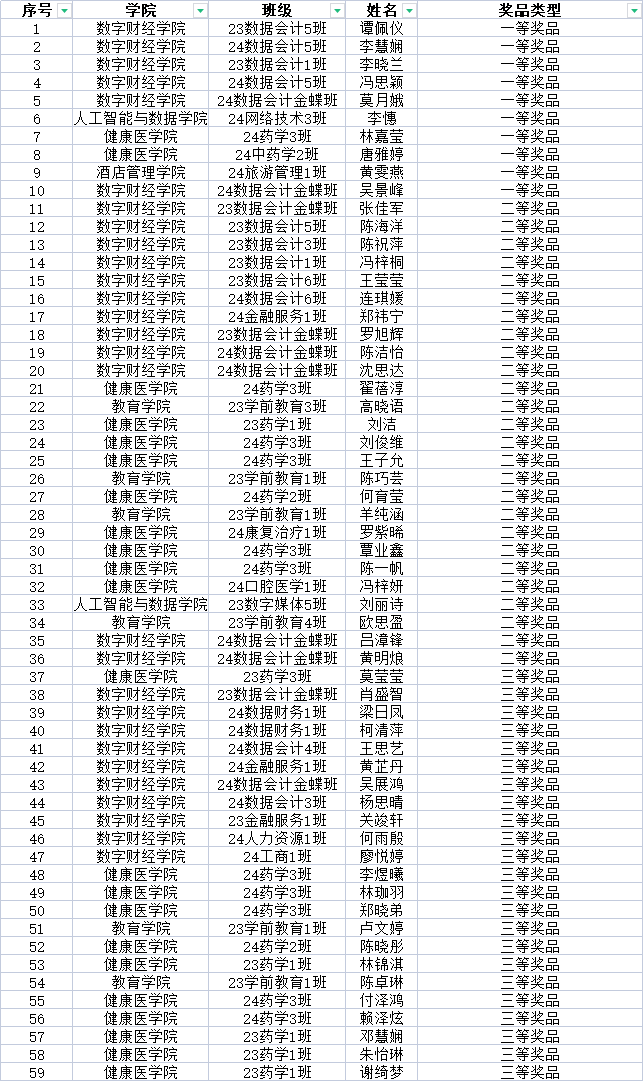 序号 学院 班级 姓名 奖品类型
1 数字财经学院 23数据会计5班 谭佩仪 一等奖品
2 数字财经学院 24数据会计5班 李慧娴 一等奖品
3 数字财经学院 23数据会计1班 李晓兰 一等奖品
4 数字财经学院 24数据会计5班 冯思颖 一等奖品
5 数字财经学院 24数据会计金蝶班 莫月娥 一等奖品
6 人工智能与数据学院 24网络技术3班 李憓 一等奖品
7 健康医学院 24药学3班 林嘉莹 一等奖品
8 健康医学院 24中药学2班 唐雅婷 一等奖品
9 酒店管理学院 24旅游管理1班 黄雯燕 一等奖品
10 数字财经学院 24数据会计金蝶班 吴景峰 一等奖品
11 数字财经学院 23数据会计金蝶班 张佳军 二等奖品
12 数字财经学院 23数据会计5班 陈海洋 二等奖品
13 数字财经学院 23数据会计3班 陈祝萍 二等奖品
14 数字财经学院 23数据会计1班 冯梓桐 二等奖品
15 数字财经学院 23数据会计6班 王莹莹 二等奖品
16 数字财经学院 24数据会计6班 连琪媛 二等奖品
17 数字财经学院 24金融服务1班 郑祎宁 二等奖品
18 数字财经学院 23数据会计金蝶班 罗旭辉 二等奖品
19 数字财经学院 24数据会计金蝶班 陈洁怡 二等奖品
20 数字财经学院 24数据会计金蝶班 沈思达 二等奖品
21 健康医学院 24药学3班 翟蓓淳 二等奖品
22 教育学院 23学前教育3班 高晓语 二等奖品
23 健康医学院 23药学1班 刘洁 二等奖品
24 健康医学院 24药学3班 刘俊维 二等奖品
25 健康医学院 24药学3班 王子允 二等奖品
26 教育学院 23学前教育1班 陈巧芸 二等奖品
27 健康医学院 24药学2班 何育莹 二等奖品
28 教育学院 23学前教育1班 羊纯涵 二等奖品
29 健康医学院 24康复治疗1班 罗紫晞 二等奖品
30 健康医学院 24药学3班 覃业鑫 二等奖品
31 健康医学院 24药学3班 陈一帆 二等奖品
32 健康医学院 24口腔医学1班 冯梓妍 二等奖品
33 人工智能与数据学院 23数字媒体5班 刘丽诗 二等奖品
34 教育学院 23学前教育4班 欧思盈 二等奖品
35 数字财经学院 24数据会计金蝶班 吕漳锋 二等奖品
36 数字财经学院 24数据会计金蝶班 黄明烺 二等奖品
37 健康医学院 23药学3班 莫莹莹 三等奖品
38 数字财经学院 23数据会计金蝶班 肖盛智 三等奖品
39 数字财经学院 24数据财务1班 梁日凤 三等奖品
40 数字财经学院 24数据财务1班 柯清萍 三等奖品
41 数字财经学院 24数据会计4班 王思艺 三等奖品
42 数字财经学院 24金融服务1班 黄芷丹 三等奖品
43 数字财经学院 24数据会计金蝶班 吴展鸿 三等奖品
44 数字财经学院 24数据会计3班 杨思晴 三等奖品
45 数字财经学院 23金融服务1班 关竣轩 三等奖品
46 数字财经学院 24人力资源1班 何雨殷 三等奖品
47 数字财经学院 24工商1班 廖悦婷 三等奖品
48 健康医学院 24药学3班 李煜曦 三等奖品
49 健康医学院 24药学3班 林珈羽 三等奖品
50 健康医学院 24药学3班 郑晓弟 三等奖品
51 教育学院 23学前教育1班 卢文婷 三等奖品
52 健康医学院 24药学2班 陈晓彤 三等奖品
53 健康医学院 23药学1班 林锦淇 三等奖品
54 教育学院 23学前教育1班 陈卓琳 三等奖品
55 健康医学院 24药学3班 付泽鸿 三等奖品
56 健康医学院 24药学3班 赖泽炫 三等奖品
57 健康医学院 23药学1班 邓慧娴 三等奖品
58 健康医学院 23药学1班 朱怡琳 三等奖品
59 健康医学院 23药学1班 谢绮梦 三等奖品